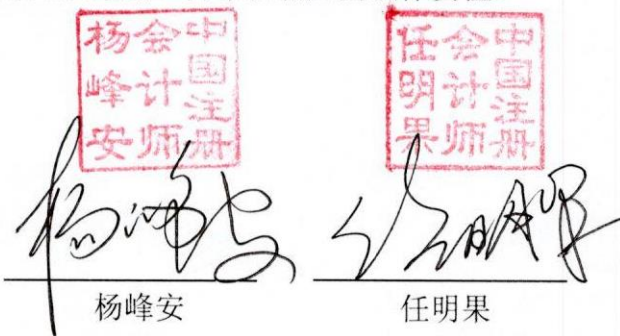 中国注册
会计师
杨峰安
中国注册
会计师
任明果
杨峰安
任明果
杨峰安
任明果